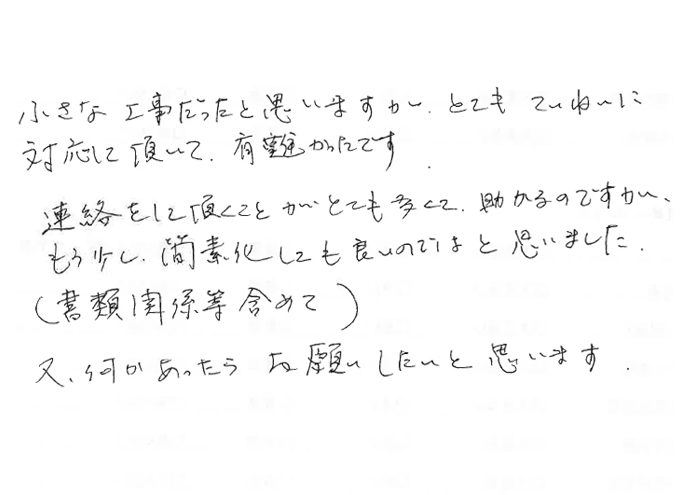 小さな工事だったと思いますが、とてもていねいに
対応して頂いて、有難かったです.
連絡をして頂くことがとても多くて、助かるのですが、
もう少し、簡素化しても良いのではと思いました.
(書類関係等含めて)
又、何かあったらお願いしたいと思います.